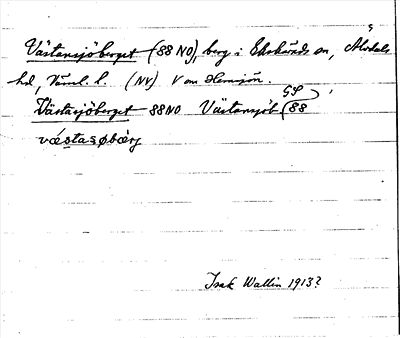 Västansjöberget (88 NO), berg i Ekshärads sn, Älvdals
hd, Värml. l. (NV) V om Hornsjön.
Västasjöberget 88 NO Västansjöb (88
GS
västasøbærg
Isak Wallin 1913?